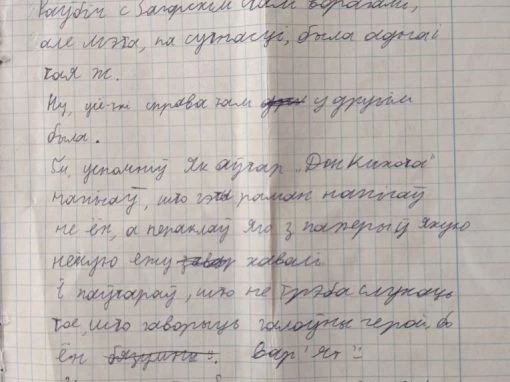 Каўбіч с Загорскім былі ворагамі,
але мэта, па сутнасці, была адной і
той ж.
Ну, усё-ж справа там у другім
была.
Ён успомніў як аўтар „Дон Кихота"
напісаў, што гэты раман напісаў
не ён, а пераклаў яго з паперы ў якую
нейкую ежу хавалі
І паўтараў, што не трэба слухаць
тое, што гаворыць галоўны герой, бо
ён вар'ят